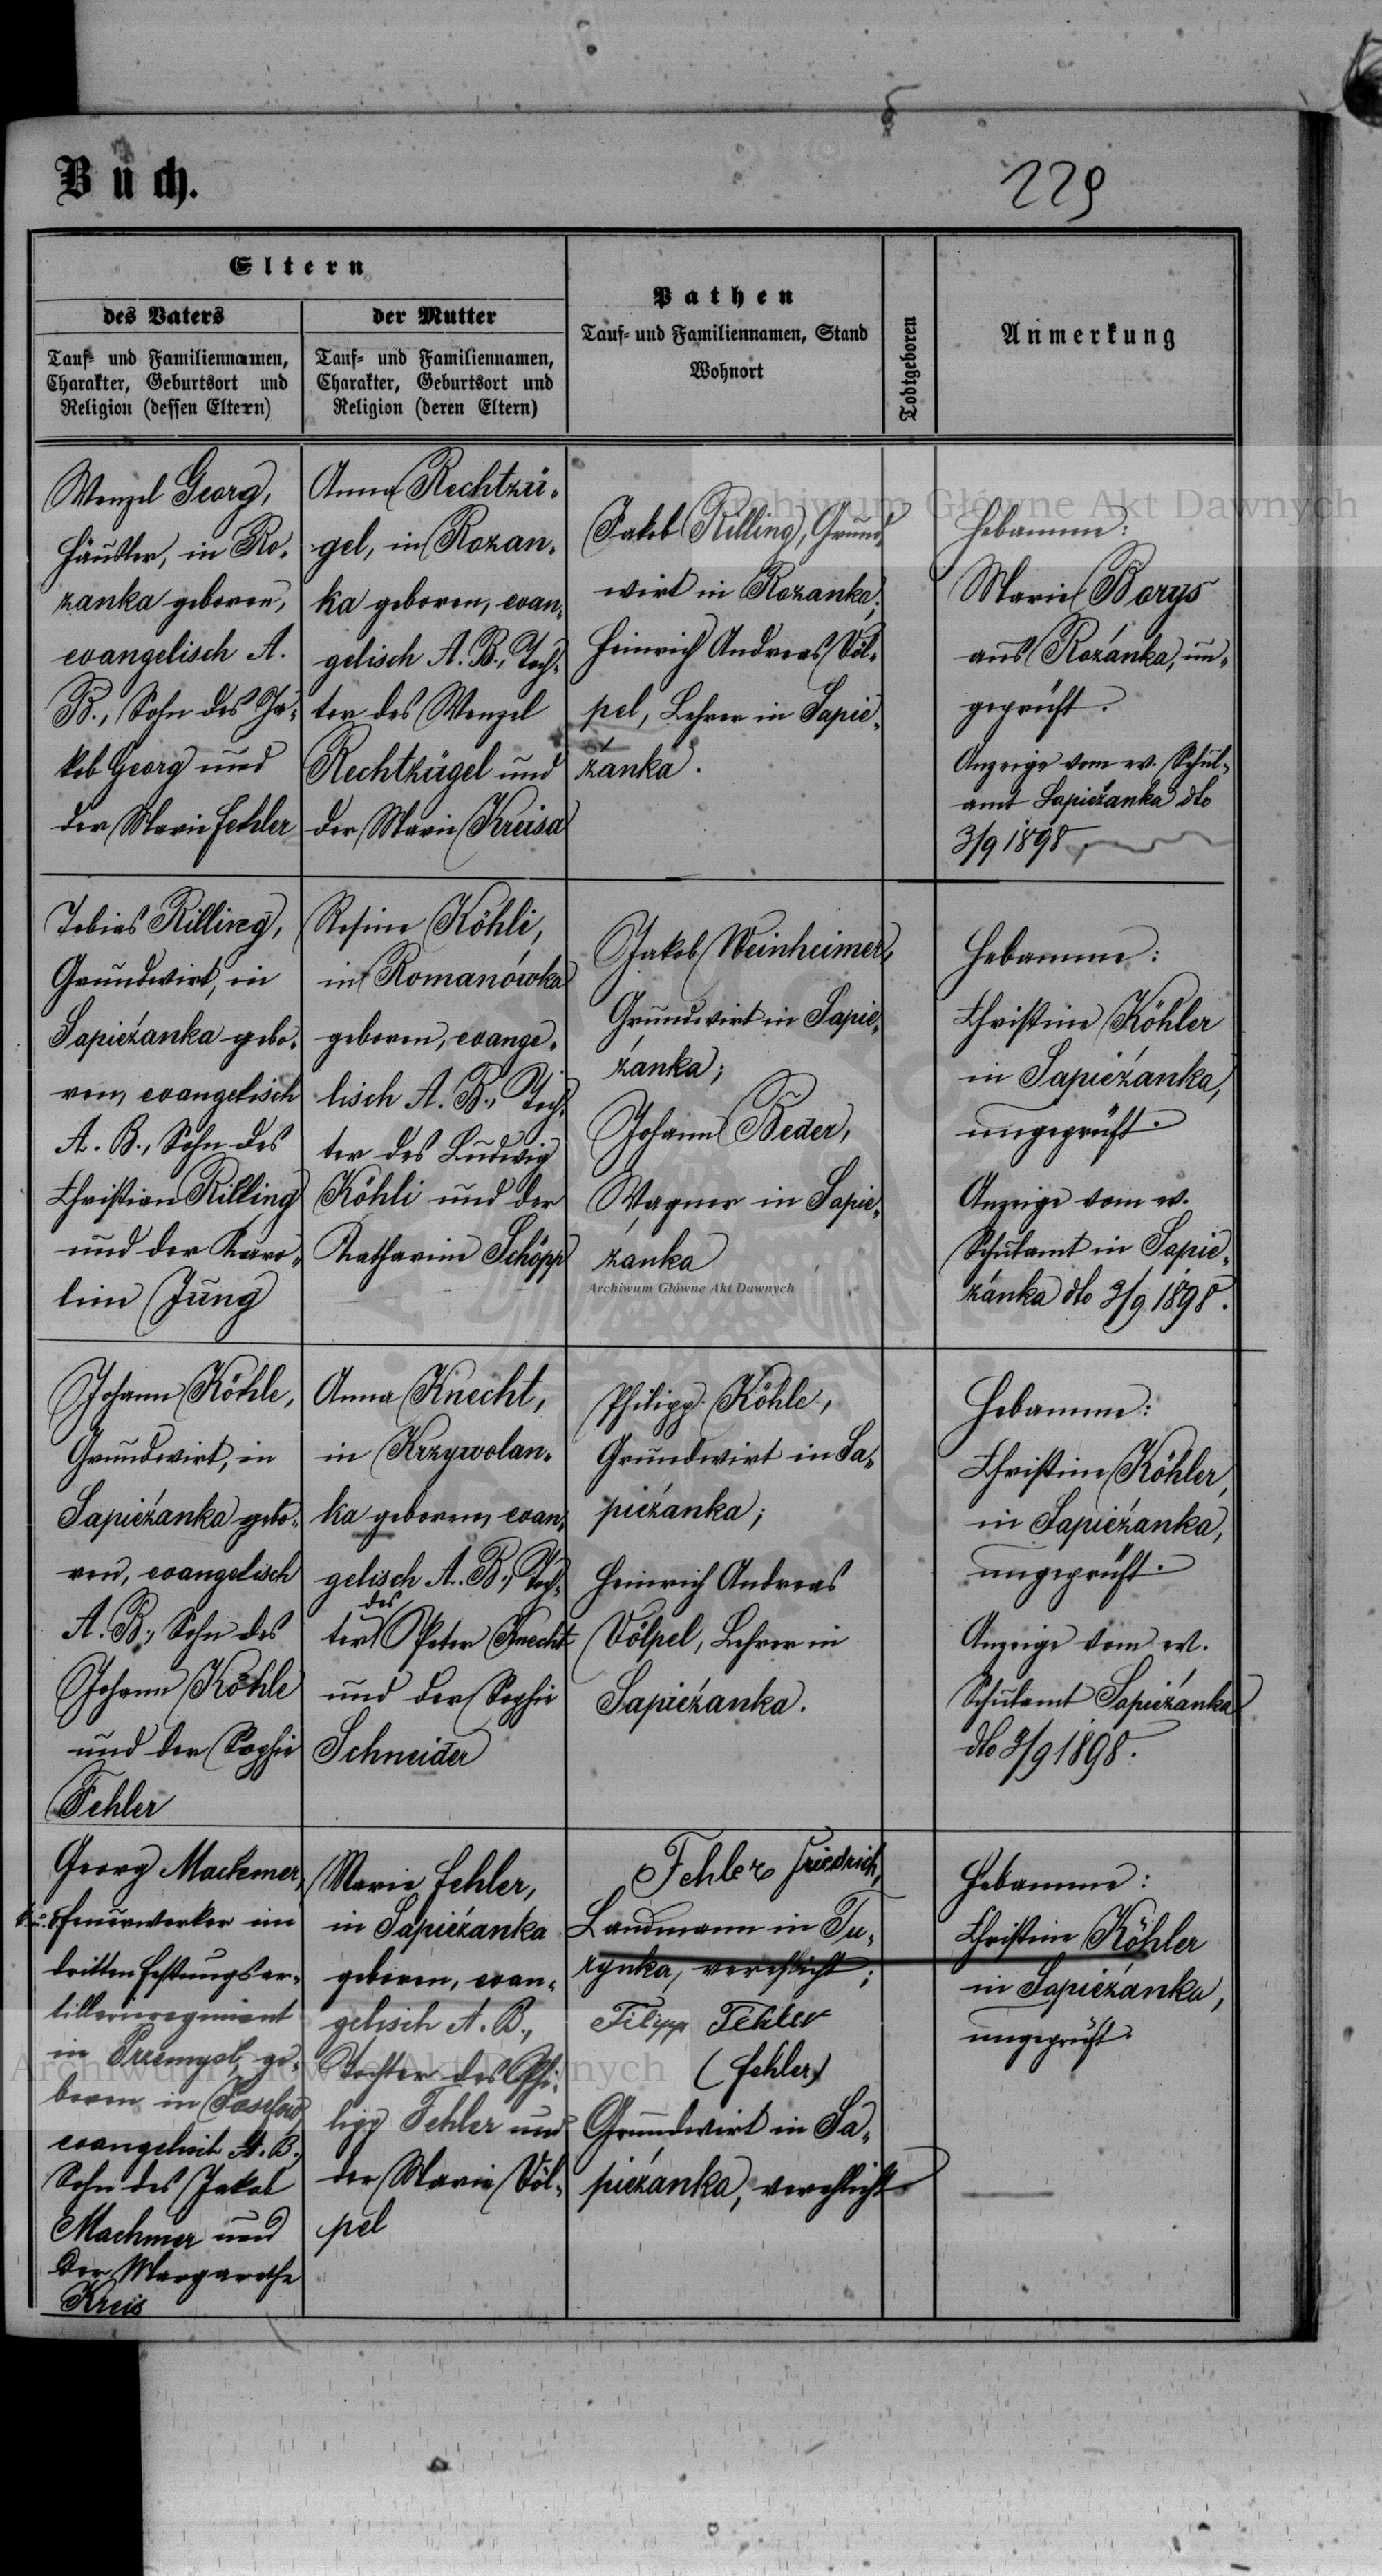 Buch.
229
Eltern
des Vaters
Tauf- und Familiennamen,
Charakter, Geburtsort und
Religion (dessen Eltern)
der Mutter
Tauf- und Familiennamen,
Charakter, Geburtsort und
Religion (deren Eltern)
Pathen
Tauf- und Familiennamen, Stand
Wohnort
Todtgeboren
Anmerkung
Wenzel Georg,
Häusler, in Ro-
zanka geboren,
evangelisch A.
B., Sohn des Ja-
kob Georg und
der Marie Fehler
Anna Rechtzü-
gel, in Rozan-
ka geboren, evan-
gelisch A. B., Toch-
ter des Wenzel
Rechtzügel und
der Marie Kreisa
Jakob Rilling, Grund-
wirt in Rozanka;
Heinrich Andreas Völ-
pel, Lehrer in Sapie-
żanka.
Hebamme:
Marie Borys
aus Rozánka, un-
geprüft.
Anzeige vom ev. Schul-
amt Sapieżanka dto
3/9 1898.
Tobias Rilling,
Grundwirt, in
Sapieżanka gebo-
ren, evangelisch
A. B., Sohn des
Christian Rilling
und der Karo-
line Jung
Rosine Köhli,
in Romanówka
geboren, evange-
lisch A. B., Toch-
ter des Ludwig
Köhli und der
Katharine Schöpp
Jakob Weinheimer,
Grundwirt in Sapie-
żanka;
Johann Beder,
Wagner in Sapie-
żanka
Hebamme:
Christine Köhler
in Sapieżanka,
ungeprüft.
Anzeige vom ev.
Schulamt in Sapie-
żanka dto 3/9 1898.
Johann Köhle,
Grundwirt, in
Sapieżanka gebo-
ren, evangelisch
A. B., Sohn des
Johann Köhle
und der Sophie
Fehler
Anna Knecht,
in Krzywolan-
ka geboren, evan-
gelisch A. B., Toch-
ter des Peter Knecht
und der Sophie
Schneider
Philipp Köhle,
Grundwirt in Sa-
pieżanka;
Heinrich Andreas
Völpel, Lehrer in
Sapieżanka.
Hebamme:
Christine Köhler,
in Sapieżanka,
ungeprüft.
Anzeige vom ev.
Schulamt Sapieżanka
dto 3/9 1898.
Georg Machmer,
k. u. k. Feuerwerker im
dritten Festungsar-
tillerieregiment
in Przemysl, ge-
boren in Josefow,
evangelisch A. B.,
Sohn des Jakob
Machmer und
der Margarethe
Kreis
Marie Fehler,
in Sapieżanka
geboren, evan-
gelisch A. B.,
Tochter des Phi-
lipp Fehler und
der Marie Völ-
pel
Fehler Friedrich,
Landmann in Tu-
rynka, verehlicht;
Filipp Fehler
(Fehler)
Grundwirt in Sa-
pieżanka, verehlicht
Hebamme:
Christine Köhler
in Sapieżanka,
ungeprüft.
Archiwum Główne Akt Dawnych
Archiwum Główne Akt Dawnych
Archiwum Główne Akt Dawnych